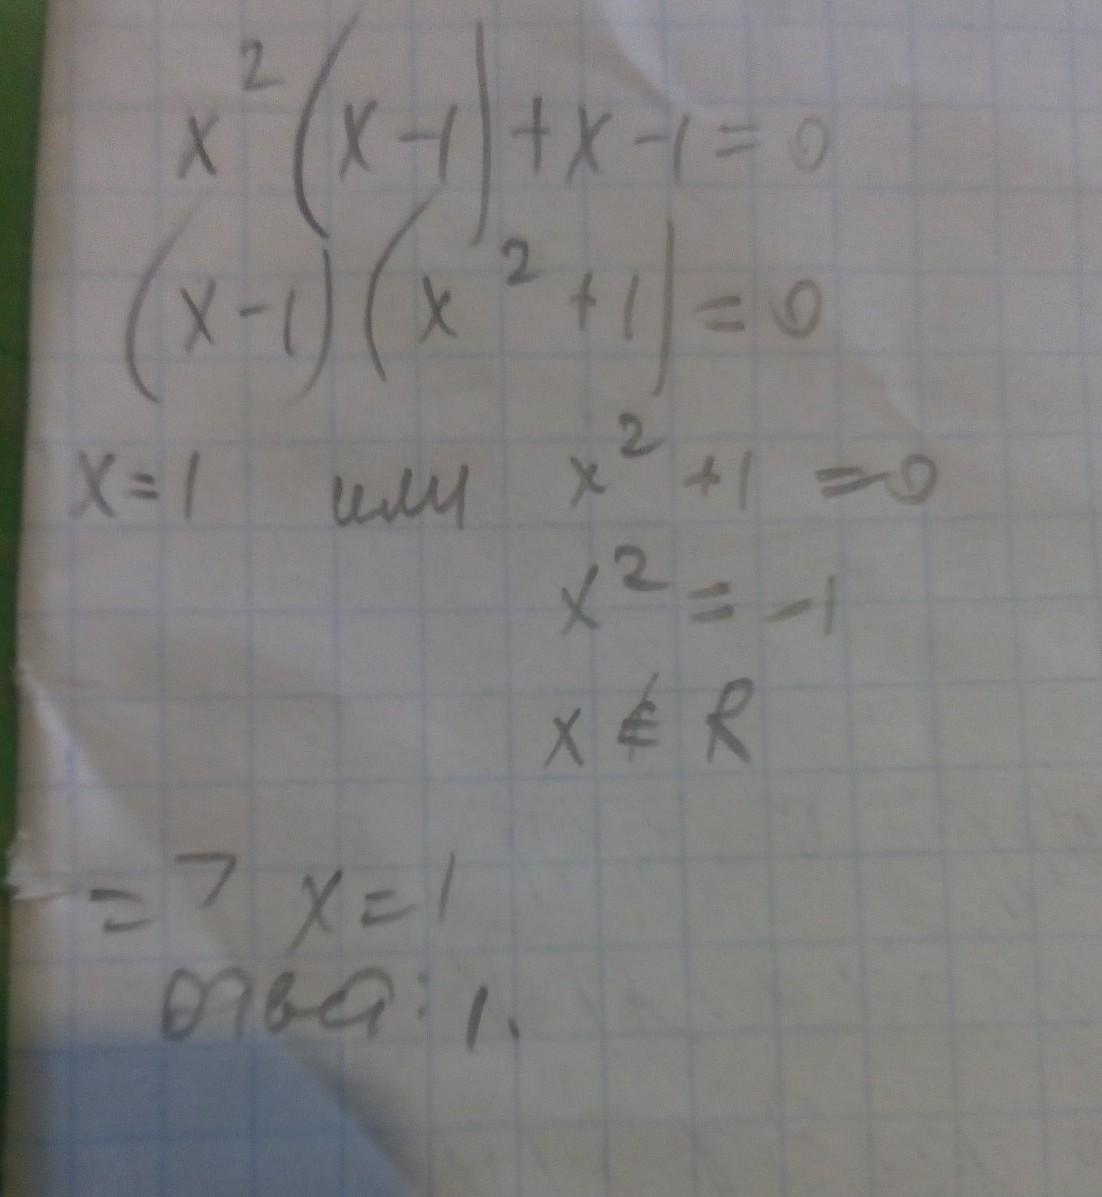 x²(x-1)+x-1=0
(x-1)(x²+1)=0
x=1 или x²+1=0
x²=-1
x∉R
=> x=1
ответ: 1.